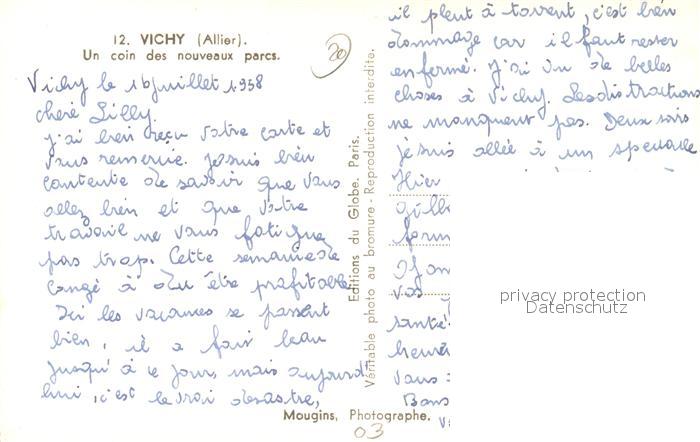 12. VICHY (Allier).
Un coin des nouveaux parcs.
20
Vichy le 16 juillet 1958
chère Lilly.
j'ai bien reçu votre carte et
vous remercie. Je suis bien
contente de savoir que vous
allez bien et que votre
travail ne vous fatigue
pas trop. Cette semaine de
congé à dû être profitable
Ici les vacances se passent
bien, il a fait beau
jusqu'à ce jour, mais aujourd'
hui, c'est le vrai désastre,
Editions du Globe. Paris.
Véritable photo au bromure - Reproduction interdite.
Mougins, Photographe.
03
il pleut à torrent, c'est bien
dommage car il faut rester
enfermé. J'ai vu de belles
choses à Vichy. Les distractions
ne manquent pas. Deux fois
je suis allée à un spectacle
Hier
form
vos
santé
heure
vous
Bons
privacy protection
Datenschutz